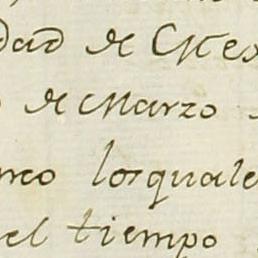 dad de Mex
de Marzo
los quale
el tiempo